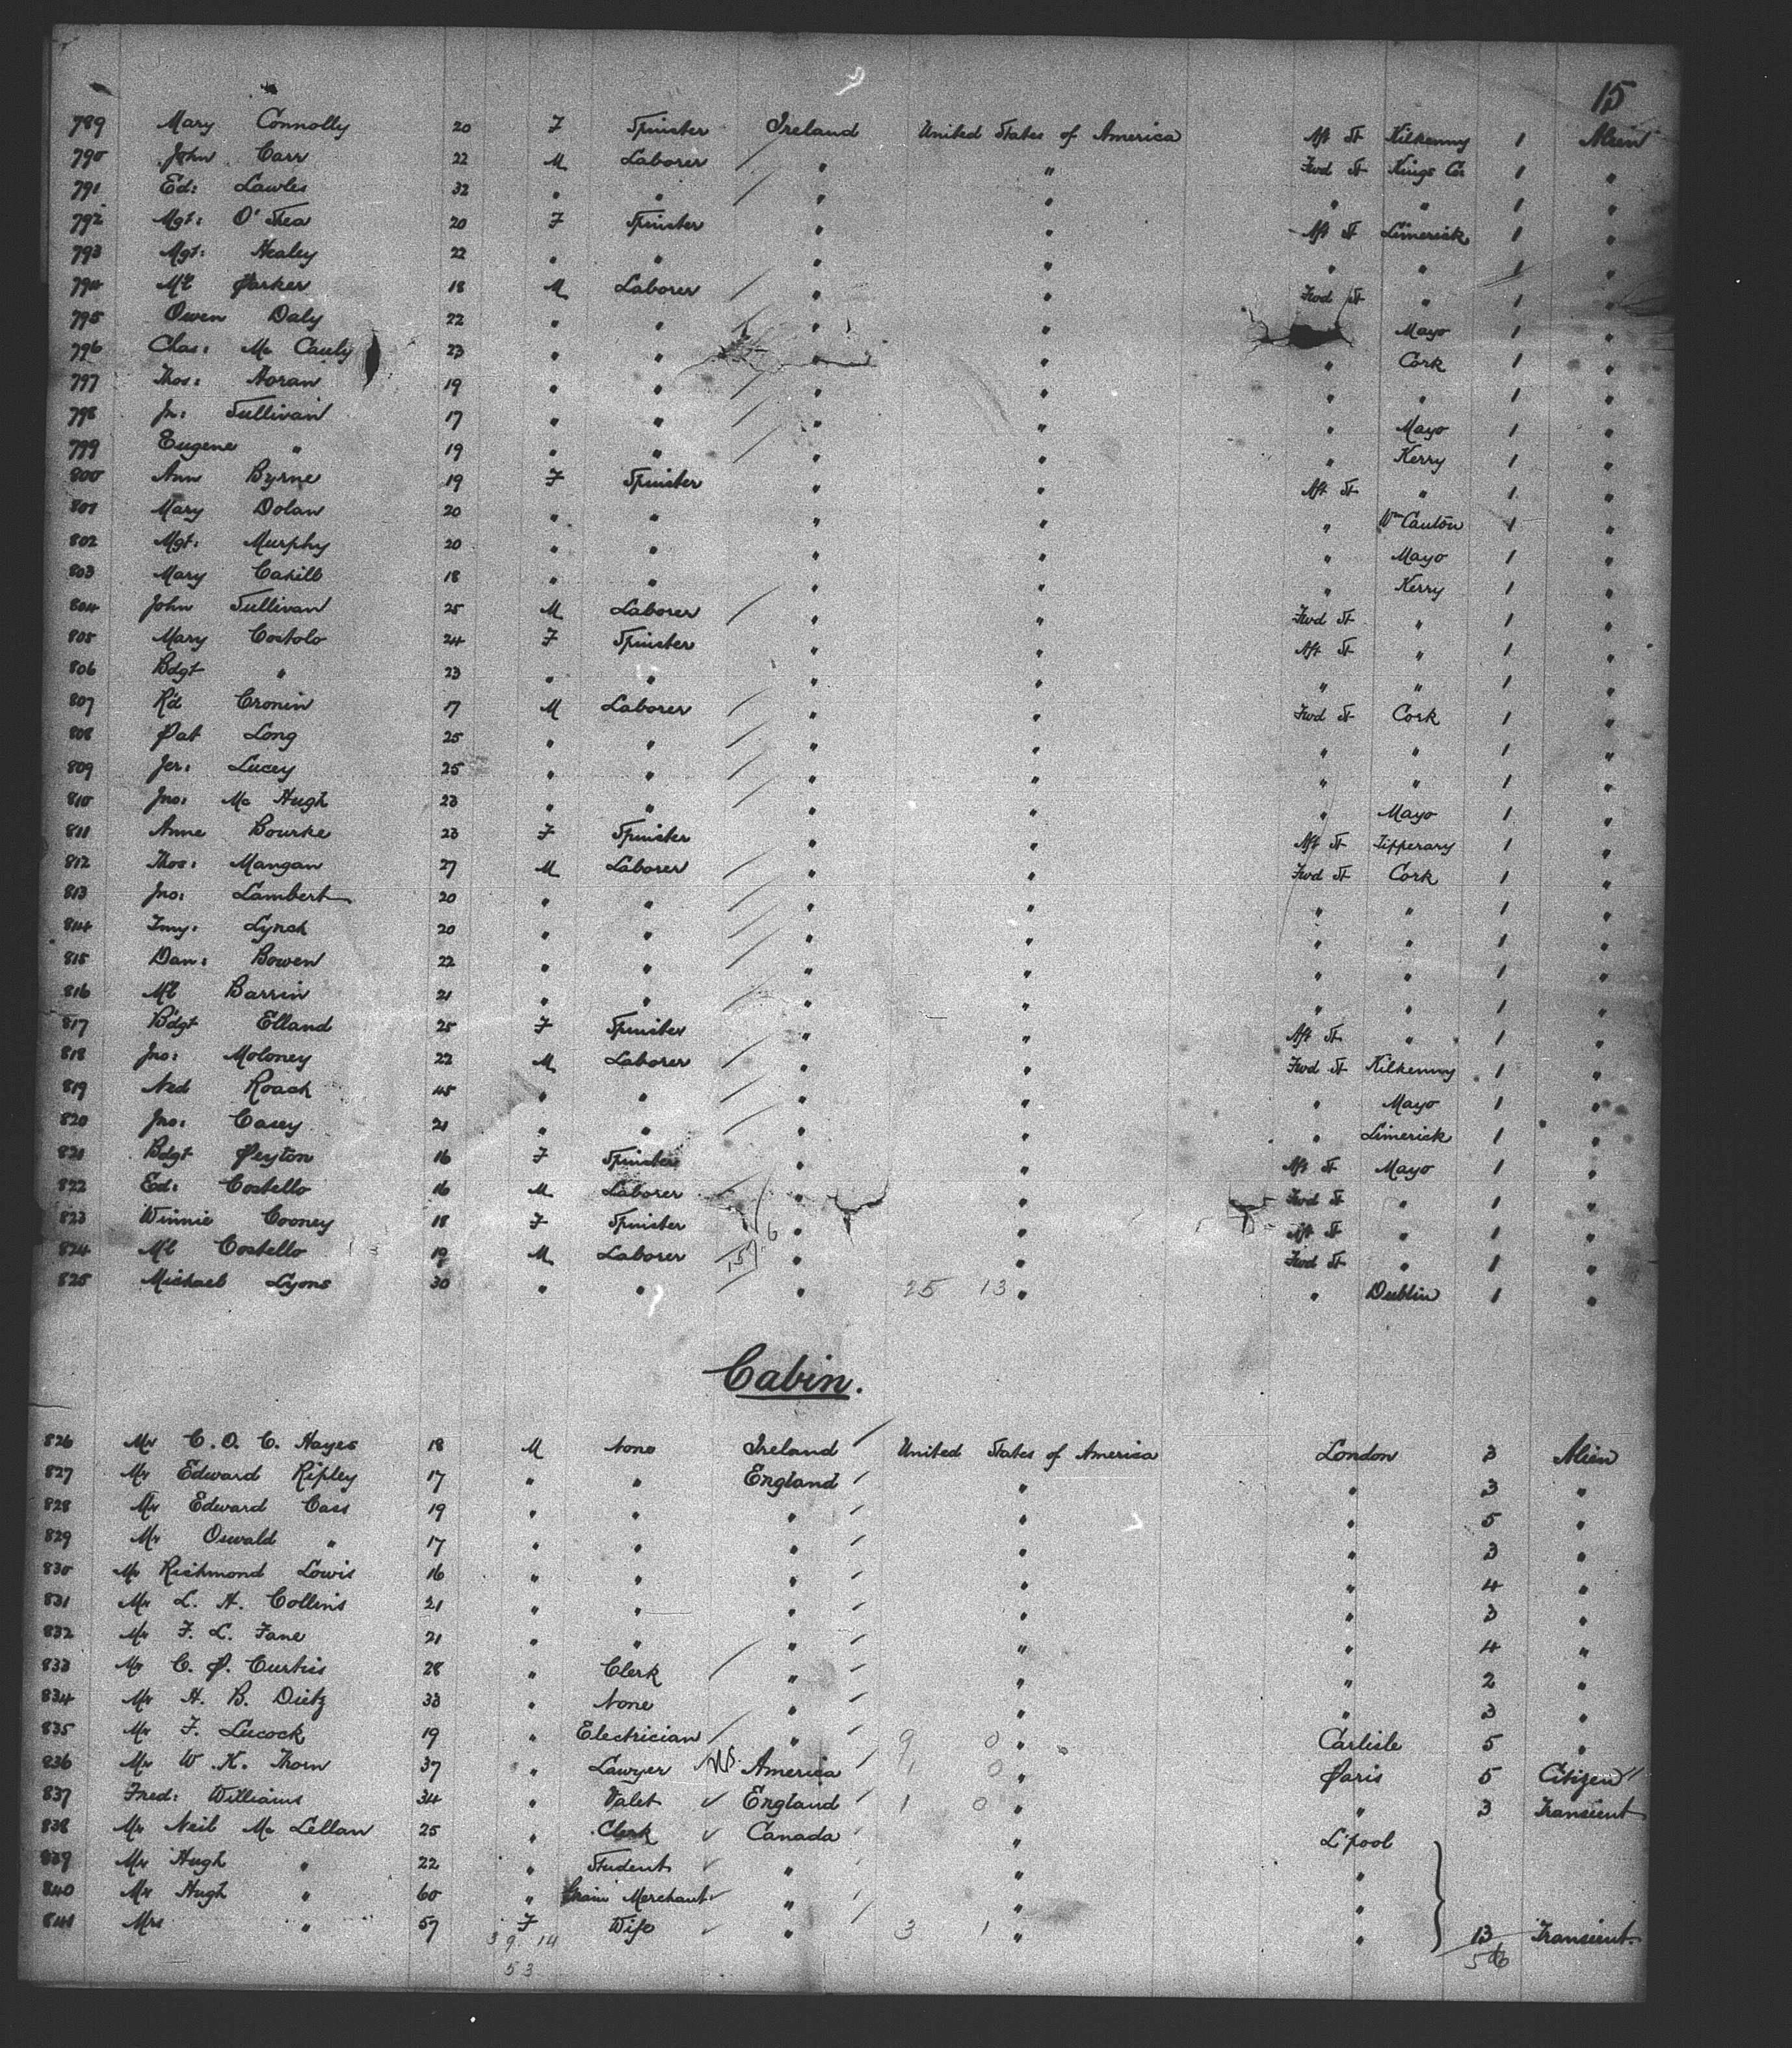 15
789 Mary Connolly 20 F Spinster Ireland United States of America Aft St Kilkenny 1 Alien
790 John Carr 22 M Laborer / " " Fwd St Kings Co 1 "
791 Ed: Lawles 32 " " / " " " " 1 "
792 Mgt: O'Shea 20 F Spinster " " Aft St Limerick 1 "
793 Mgt: Healey 22 " " " " " " 1 "
794 Ml Parker 18 M Laborer / " " Fwd St " 1 "
795 Owen Daly 22 " " / " " Mayo 1 "
796 Chas: Mc Cauly 23 " " / " " " Cork 1 "
797 Thos: Horan 19 " " / " " " " 1 "
798 Jn: Sullivan 17 " " / " " " Mayo 1 "
799 Eugene " 19 " " / " " " Kerry 1 "
800 Ann Byrne 19 F Spinster " " Aft St " 1 "
801 Mary Dolan 20 " " " " " 1 "
802 Mgt: Murphy 20 " " " " " Mayo 1 "
803 Mary Cahill 18 " " " " " Kerry 1 "
804 John Sullivan 25 M Laborer / " " Fwd St " 1 "
805 Mary Costolo 24 F Spinster " " Aft St " 1 "
806 Bdgt " 23 " " " " " " 1 "
807 Rd Cronin 17 M Laborer / " " Fwd St Cork 1 "
808 Pat Long 25 " " / " " " " 1 "
809 Jer: Lucey 25 " " / " " " " 1 "
810 Jno: Mc Hugh 23 " " / " " " Mayo 1 "
811 Anne Bourke 23 F Spinster " " Aft St Tipperary 1 "
812 Thos: Mangan 27 M Laborer / " " Fwd St Cork 1 "
813 Jno: Lambert 20 " " / " " " " 1 "
814 Tmy: Lynch 20 " " / " " " " 1 "
815 Dan: Bowen 22 " " / " " " " 1 "
816 Ml Barrin 21 " " / " " " " 1 "
817 Bdgt Elland 25 F Spinster " " Aft St " 1 "
818 Jno: Moloney 22 M Laborer / " " Fwd St Kilkenny 1 "
819 Ned Roach 45 " " / " " " Mayo 1 "
820 Jno: Casey 21 " " / " " " Limerick 1 "
821 Bdgt Peyton 16 F Spinster " " Aft St Mayo 1 "
822 Ed: Costello 16 M Laborer / " " Fwd St " 1 "
823 Winnie Cooney 18 F Spinster " " Aft St " 1 "
824 Ml Costello 19 M Laborer " " Fwd St " 1 "
825 Michael Lyons 30 " " / " 25 13 " " Dublin 1 "
Cabin.
826 Mr C. O. C. Hayes 18 M None Ireland / United States of America London 3 Alien
827 Mr Edward Ripley 17 " " England / " " 3 "
828 Mr Edward Cass 19 " " " / " " 5 "
829 Mr Oswald " 17 " " " / " " 3 "
830 Mr Richmond Lowis 16 " " " / " " 4 "
831 Mr L. H. Collins 21 " " " / " " 3 "
832 Mr F. L. Fane 21 " " " / " " 4 "
833 Mr C. P. Curtis 28 " Clerk / " / " " 2 "
834 Mr H. B. Dietz 33 " None " / " " 3 "
835 Mr F. Lucock 19 " Electrician / " / 9 0 " Carlisle 5 "
836 Mr W. K. Thorn 37 " Lawyer America / 1 0 " Paris 5 Citizen
837 Fred: Williams 34 " Valet England / 1 0 " " 3 Transient
838 Mr Neil Mc Lellan 25 " Clerk Canada / " L'pool
839 Mr Hugh " 22 " Student " " "
840 Mr Hugh " 60 " Grain Merchant " / " "
841 Mrs " 57 F Wife " / 3 1 " " 13 Transient
39 14 56
53